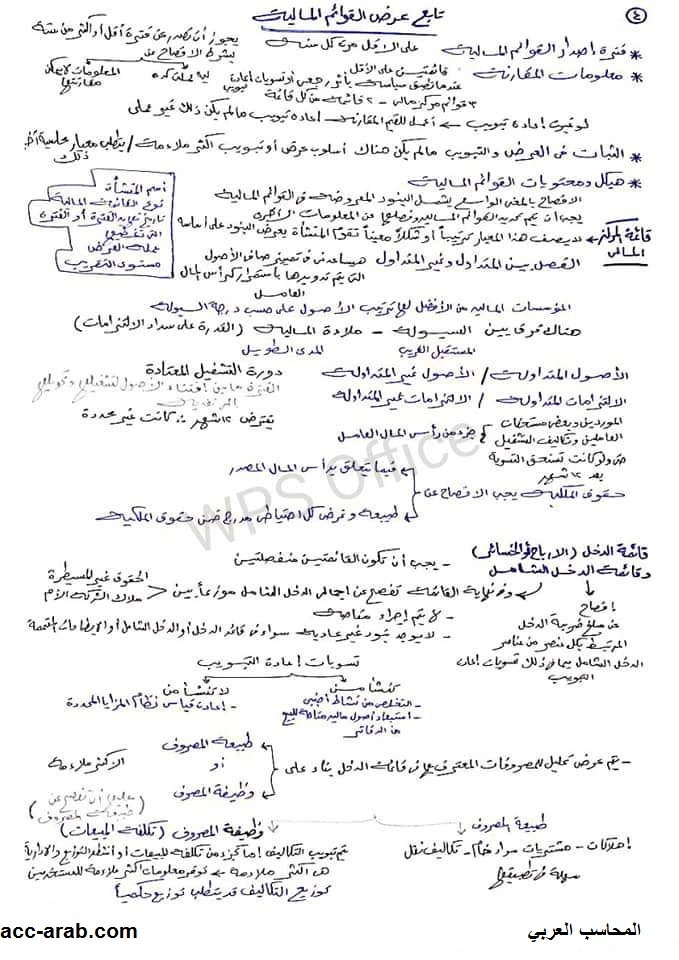 ٤
تابع عرض القوائم المالية
* فترة إصدار القوائم المالية على الأقل مرة كل سنة
يجوز أن تصدر عن فترة أقل أو أكثر من سنة
بشرط الإفصاح عن
* معلومات المقارنة
قائمتين على الأقل
المعلومات لا يمكن مقارنتها
عند تطبيق سياسة بأثر رجعي أو تسويات إعادة تبويب
٣ قوائم مركز مالي - ٢ قائمة من كل قائمة
لو غيرت إعادة تبويب ← القيم المقارنة إعادة تبويب مالم يكن ذلك غير عملي
* الثبات فى العرض والتبويب مالم يكن هناك أسلوب عرض أو تبويب أكثر ملاءمة / يتطلب معيار محاسبة أخر ذلك
* هيكل ومحتويات القوائم المالية
الافصاح بالمعنى الواسع يشمل البنود المعروضة فى القوائم المالية
يجب أن يتم تحديد القوائم المالية وفصلها عن المعلومات الأخرى
اسم المنشأة
نوع القائمة المالية
تاريخ نهاية الفترة أو الفترة
التى تغطيها
عملة العرض
مستوى التقريب
قائمة المركز المالى
لا يصف هذا المعيار ترتيباً أو شكلاً معيناً تقوم المنشأة بعرض البنود على أساسه
الفصل بين المتداول وغير المتداول
هيساعد فى تمييز صافى الأصول
التى يتم تدويرها باستمرار كرأس المال
العامل
المؤسسات المالية من الأفضل لها ترتيب الأصول على حسب درجة السيولة
هناك فرق بين السيولة - ملاءة المالية (القدرة على سداد الالتزامات)
المستقبل القريب
المدى الطويل
الأصول المتداولة / الأصول غير المتداولة
دورة التشغيل المعتادة
الفترة ما بين اقتناء الأصول لتشغيلها وتحويلها
إلى نقدية
الالتزامات المتداولة / الالتزامات غير المتداولة
يفترض ١٢ شهر ∴ كانت غير محددة
الموردين وبعض مستحقات
العاملين وتكاليف التشغيل
جزء من رأس المال العامل
حتى ولو كانت تستحق التسوية
بعد ١٢ شهر
حقوق الملكية يجب الافصاح عن
فيما يتعلق برأس المال المصدر
طبيعة وغرض كل احتياطى مدرج ضمن حقوق الملكية
WPS Office
قائمة الدخل (الأرباح أو الخسائر)
وقائمة الدخل الشامل
- يجب أن تكون القائمتين منفصلتين
← وفى نهاية القائمة تفصح عن إجمالى الدخل الشامل موزعاً بين
الحقوق غير المسيطرة
ملاك الشركة الأم
- لا يتم إجراء مقاصة
- لا يوجد بنود غير عادية سواء فى قائمة الدخل أو الدخل الشامل أو الإيضاحات المتممة
إفصاح
عن مبلغ ضريبة الدخل
المرتبط بكل عنصر من عناصر
الدخل الشامل بما فى ذلك تسويات إعادة
التبويب
تسويات إعادة التبويب
تنشأ من
- التخلص من نشاط أجنبى
- استبعاد أصول مالية متاحة للبيع
من الدفاتر
لا تنشأ من
- إعادة قياس نظام المزايا المحددة
- يتم عرض تحليل للمصروفات المعترف بها فى قائمة الدخل بناء على
طبيعة المصروف
أو
وظيفة المصروف
الأكثر ملاءمة
(عليها أن تفصح عن
طبيعة المصروف)
طبيعة المصروف
إهلاكات - مشتريات مواد خام - تكاليف نقل
سهلة فى تطبيقها
وظيفة المصروف (تكلفة المبيعات)
يتم تبويب التكاليف إما كجزء من تكلفة المبيعات أو أنشطة التوزيع والإدارية
هى أكثر ملاءمة ← توفر معلومات أكثر ملاءمة للمستخدمين
توزيع التكاليف قد يتطلب توزيع حكمياً
acc-arab.com
المحاسب العربي